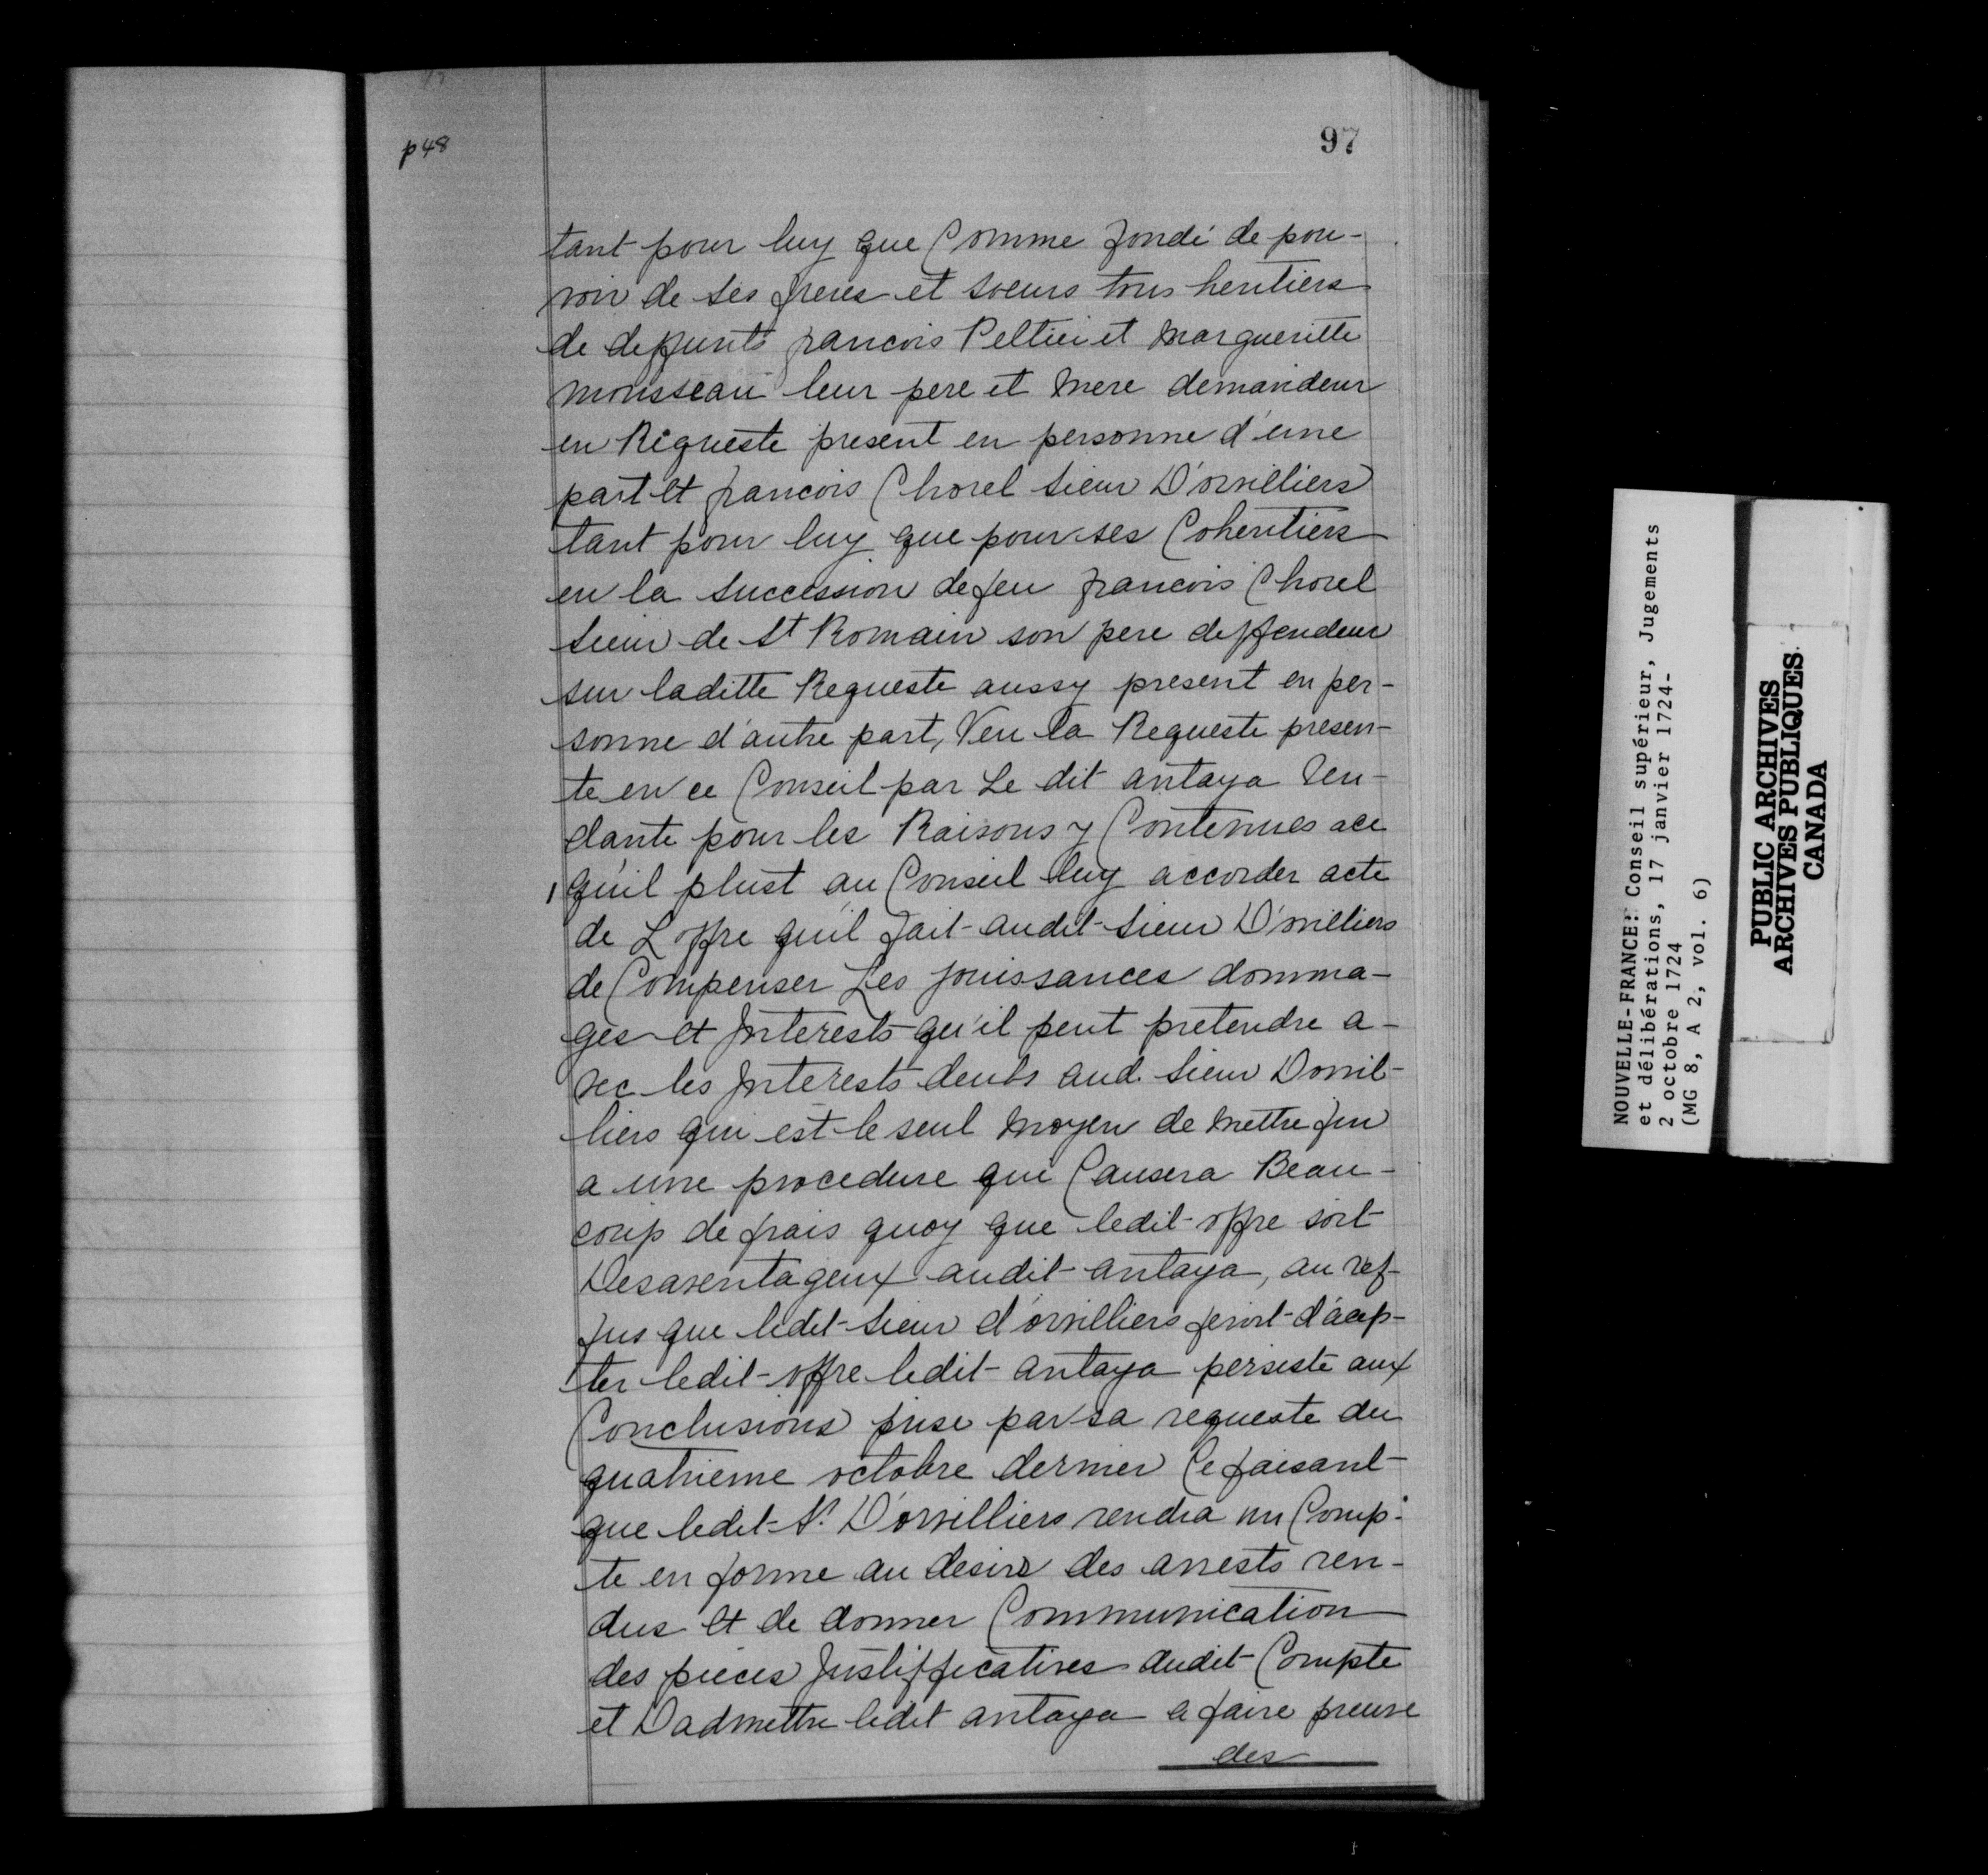 p 48
97
tant pour luy que Comme fondé de pou-
voir de ses freres et soeurs tous heritiers
de deffunts francois Peltier et Margueritte
mousseau leur pere et Mere demandeur
en Requeste present en personne d'une
part et francois Chorel sieur D'orvilliers
tant pour luy que pour ses Coheritiers
en la succession de feu francois Chorel
sieur de St Romain son pere deffendeur
sur laditte Requeste aussy present en per-
sonne d'autre part, Veu la Requeste presen-
te en ce Conseil par Le dit antaya ten-
dante pour les Raisons y Contenues a ce
qu'il plust au Conseil luy accorder acte
de L'offre qu'il fait audit sieur D'orvilliers
de Compenser Les jouissances domma-
ges et Interests qu'il peut pretendre a-
vec les Interests deubs aud. sieur Dorvil-
liers qui est le seul moyen de mettre fin
a une procedure qui Causera Beau-
coup de frais quoy que ledit offre soit
Desaventageux audit antaya, au ref-
fus que ledit sieur d'orvilliers feroit d'acep-
ter ledit offre ledit antaya persiste aux
Conclusions prise par sa requeste du
quatrieme octobre dernier Ce faisant
que ledit Sr. D'orvilliers rendra un Comp-
te en forme au desir des arrests ren-
dus et de donner Communication
des pieces Justifficatives dudit Compte
et Dadmettre ledit antaya a faire preuve
des
NOUVELLE-FRANCE: Conseil supérieur, Jugements
et délibérations, 17 janvier 1724-
2 octobre 1724
(MG 8, A 2, vol. 6)
PUBLIC ARCHIVES
ARCHIVES PUBLIQUES
CANADA